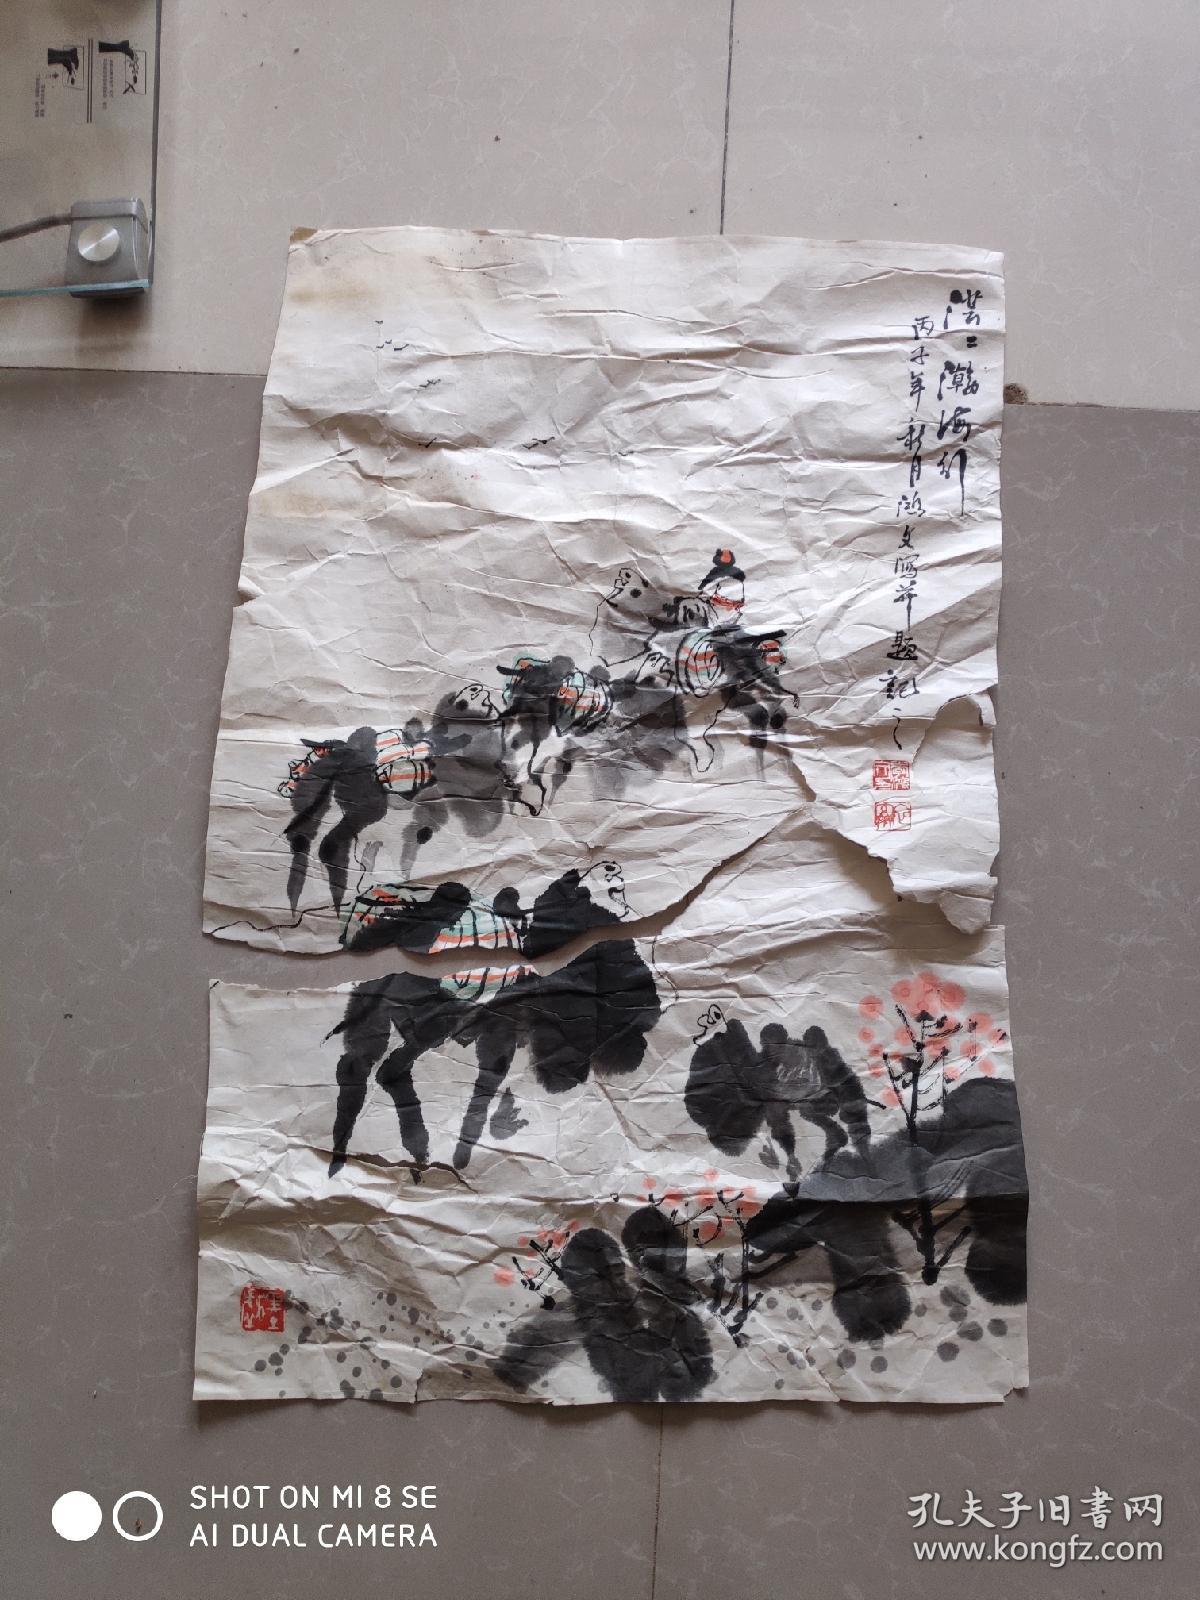 茫〻瀚海行
丙子年新月鴻文寫并題記之
SHOT ON MI 8 SE
AI DUAL CAMERA
孔夫子旧書网
www.kongfz.com